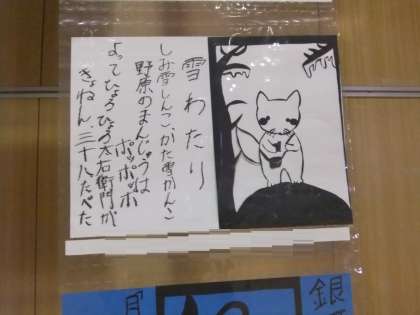 雪わたり
しみ雪しんこ、かた雪かんこ
野原のまんじゅうは
ポッポッポ
よってひょろひょろ太右衛門が
きょねん、三十八たべた
銀